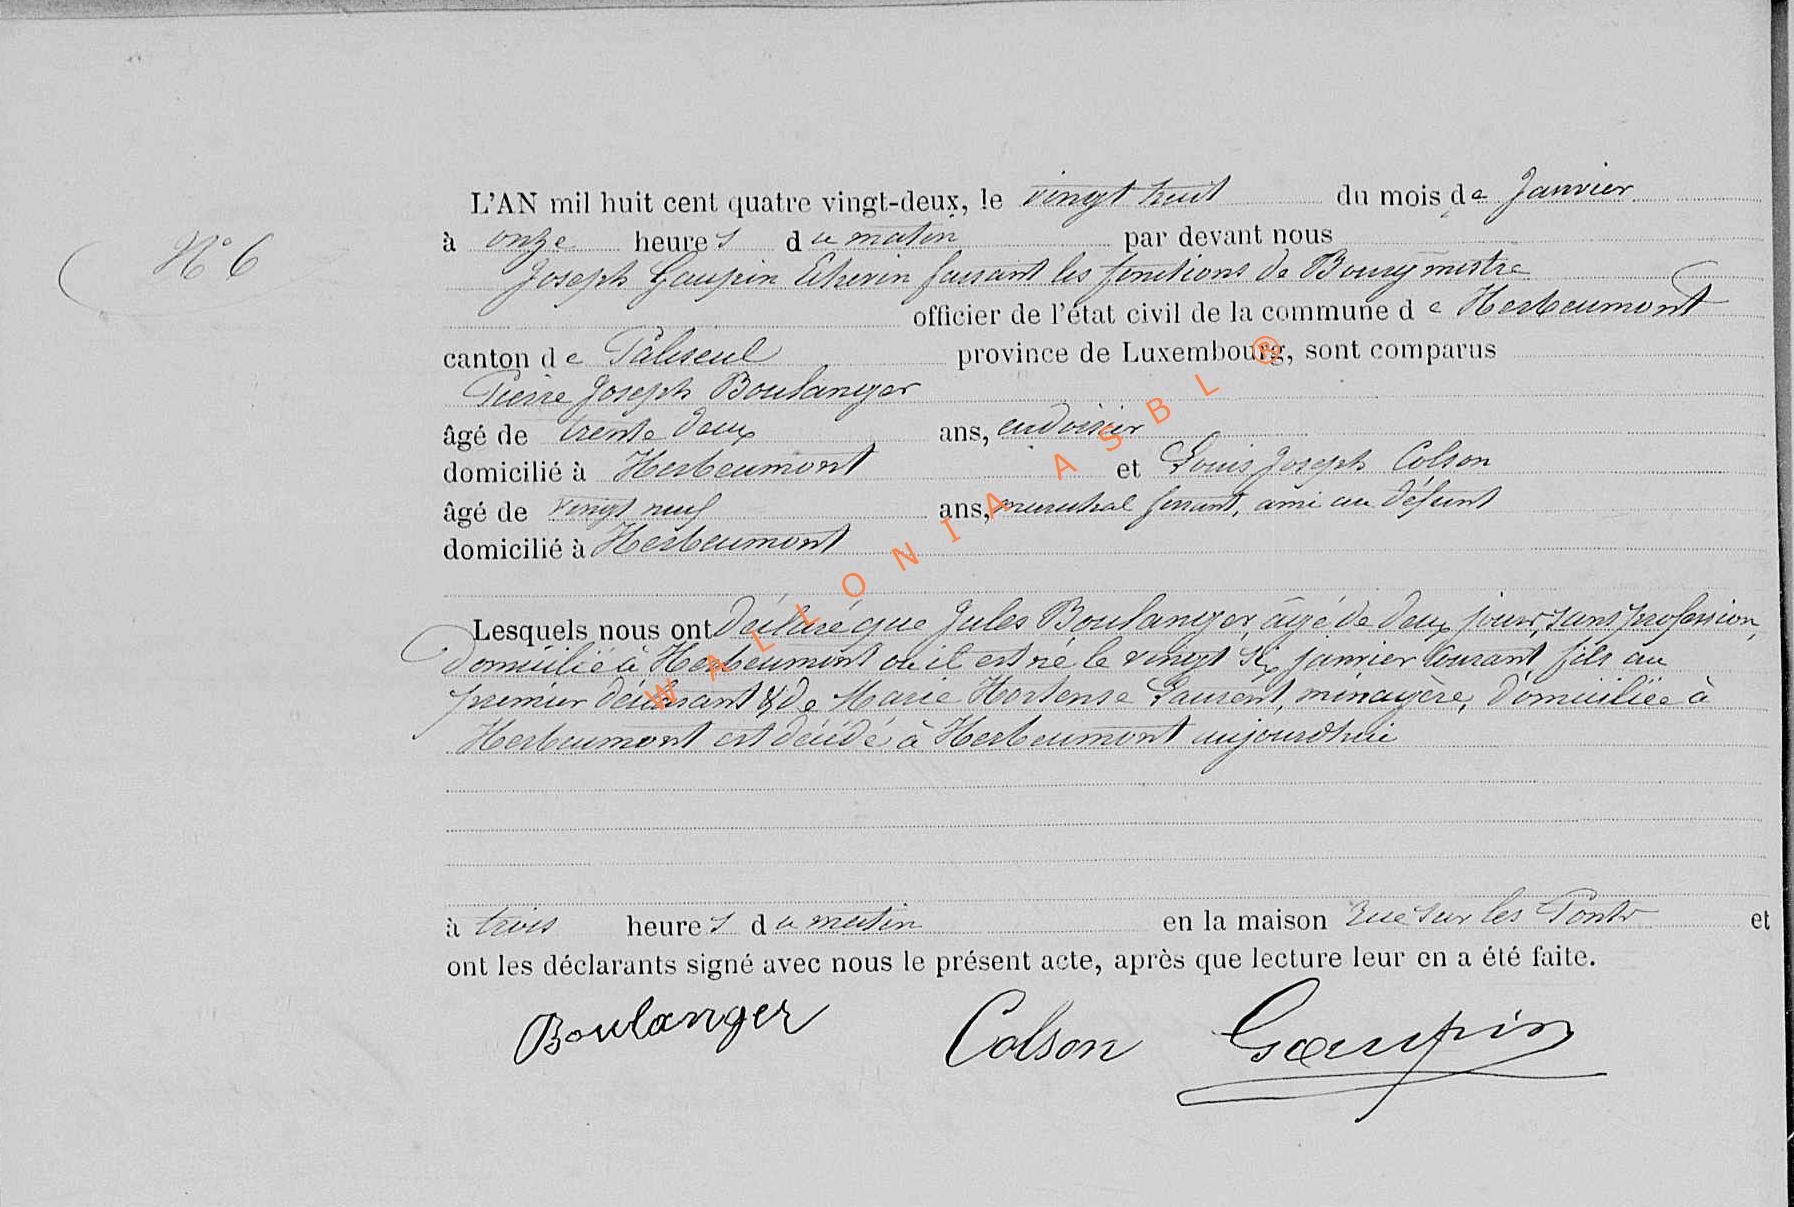 L'AN mil huit cent quatre vingt-deux, le vingt huit du mois de Janvier
N° 6
à onze heures du matin par devant nous
Joseph Gaupin Echevin faisant les fonctions de Bourgmestre
officier de l'état civil de la commune de Herbeumont
canton de Paliseul province de Luxembourg, sont comparus
Pierre Joseph Boulanger
âgé de trente deux ans, ardoisier
domicilié à Herbeumont et Louis Joseph Colson
âgé de vingt neuf ans, marechal ferrant, ami au défunt
domicilié à Herbeumont
Lesquels nous ont déclaré que Jules Boulanger, âgé de deux jours, sans profession,
domicilié à Herbeumont où il est né le vingt six janvier courant, fils au
premier déclarant & de Marie Hortense Laurent, ménagère, domiciliée à
Herbeumont est décédé à Herbeumont aujourd'hui
à trois heures du matin en la maison rue sur les Ponts et
ont les déclarants signé avec nous le présent acte, après que lecture leur en a été faite.
Boulanger Colson Gaupin
WALLONIA ASBL ®